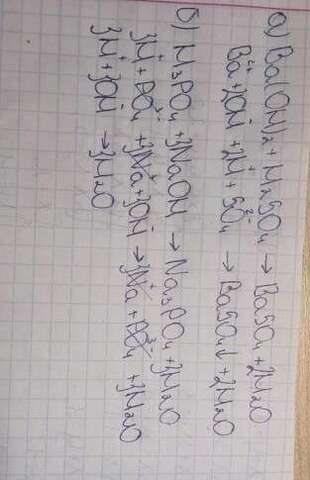 а) Ba(OH)₂ + H₂SO₄ → BaSO₄ + 2H₂O
Ba²⁺ + 2OH⁻ + 2H⁺ + SO₄²⁻ → BaSO₄↓ + 2H₂O
б) H₃PO₄ + 3NaOH → Na₃PO₄ + 3H₂O
3H⁺ + PO₄³⁻ + 3Na⁺ + 3OH⁻ → 3Na⁺ + PO₄³⁻ + 3H₂O
3H⁺ + 3OH⁻ → 3H₂O